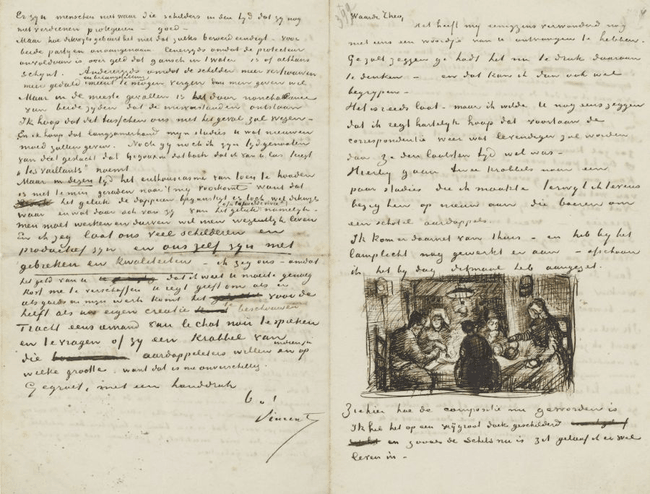 Er zyn menschen met waar die schilders in den tyd dat zy nog
niet verdienen protegeren – goed –
Maar hoe dikwijls gebeurt het niet dat zulks beroerd eindigt – voor
beide partyen onaangenaam Eenerzyds omdat de protecteur
ontevreden is over geld dat gansch in 't water is of althans
schynt. Anderzyds omdat de schilder meer vertrouwen
meer geduld meer belangstelling te mogen vergen dan men geven wil
Maar in de meeste gevallen is het door nonchalance
van beide zyden dat de misverstanden ontstaan
Ik hoop dat dit tusschen ons niet het geval zal wezen –
En ik hoop dat langzamerhand myn studies U wat nieuwen
moed zullen geven. Noch gy noch ik zyn tydgenooten
van dat geslacht dat Gigoux in dat boek dat ik van U kreeg
„les vaillants" noemt
Maar in dezen tyd het enthousiasme van toen te houden
is niet te min geraden naar 't my voorkomt want dat
het geluk de dappern begunstigt is toch wel dikwyls
waar en wat daar ook van zy van het geluk
men moet werken en durven wil men wezenlyk leven
En ik zeg laat ons veel schilderen en
productief zyn en ons zelf zyn met
gebreken en kwaliteiten – ik zeg ons – omdat
het geld van U dat ik weet U moeite genoeg
kost me te verschaffen U regt geeft om als er
iets goeds in myn werk komt het voor de
helft als Uw eigen creatie te beschouwen
Tracht eens iemand van le chat noir te spreken
en te vragen of zy een krabbel van
die aardappeleters willen en zoo ja
welke grootte. want dat is me onverschillig
Gegroet, met een handdruk
b. à t.
Vincent
Waarde Theo,
Het heeft my eenigzins verwonderd nog
niet eens een woordje van U ontvangen te hebben.
Ge zult zeggen ge hadt het nu te druk daaraan
te denken – en dat kan ik dan ook wel
begrypen –
Het is reeds laat – maar ik wilde U nog eens zeggen
dat ik regt hartelyk hoop dat voortaan de
correspondentie weer wat levendiger zal worden
dan ze den laatsten tyd wel was –
Hierby gaan twee krabbels naar een
paar studies die ik maakte terwyl ik tevens
bezig ben op nieuw aan die boeren om
een schotel aardappels.
Ik kom er daarnet van thuis – en heb by het
lamplicht nog gewerkt er aan – ofschoon
ik het by dag ditmaal heb aangezet.
Ziehier hoe de compositie nu geworden is
Ik heb het op een vrij groot doek geschilderd
en zooals de schets nu is zit geloof ik er wel
leven in –